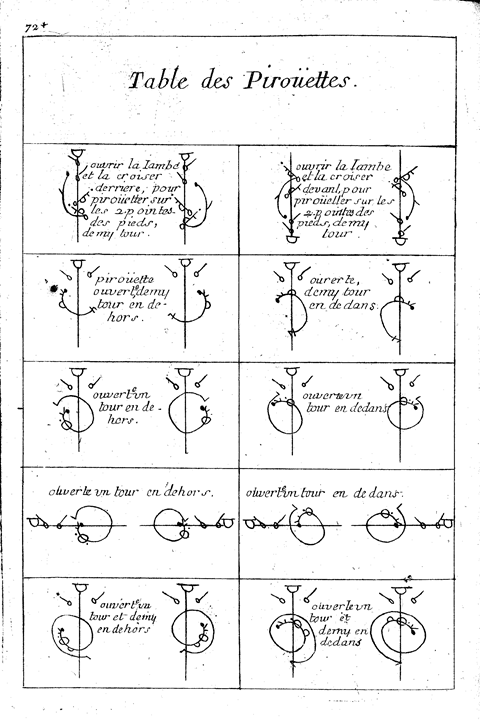 72+
Table des Piroüettes.
ouvrir la Iambe
et la croiser
derriere, pour
piroüetter sur
les 2 pointes
des pieds,
demy tour.
ouvrir la Iambe
et la croiser
devant, pour
piroüetter sur les
2 pointes des
pieds, demy
tour.
piroüette
ouverte, demy
tour en de-
hors.
ouverte,
demy tour
en dedans.
ouverte vn
tour en de-
hors.
ouverte vn
tour en dedans
ouverte vn tour en dehors.
ouverte vn tour en dedans.
ouverte vn
tour et demy
en dehors
ouverte vn
tour et
demy en
dedans